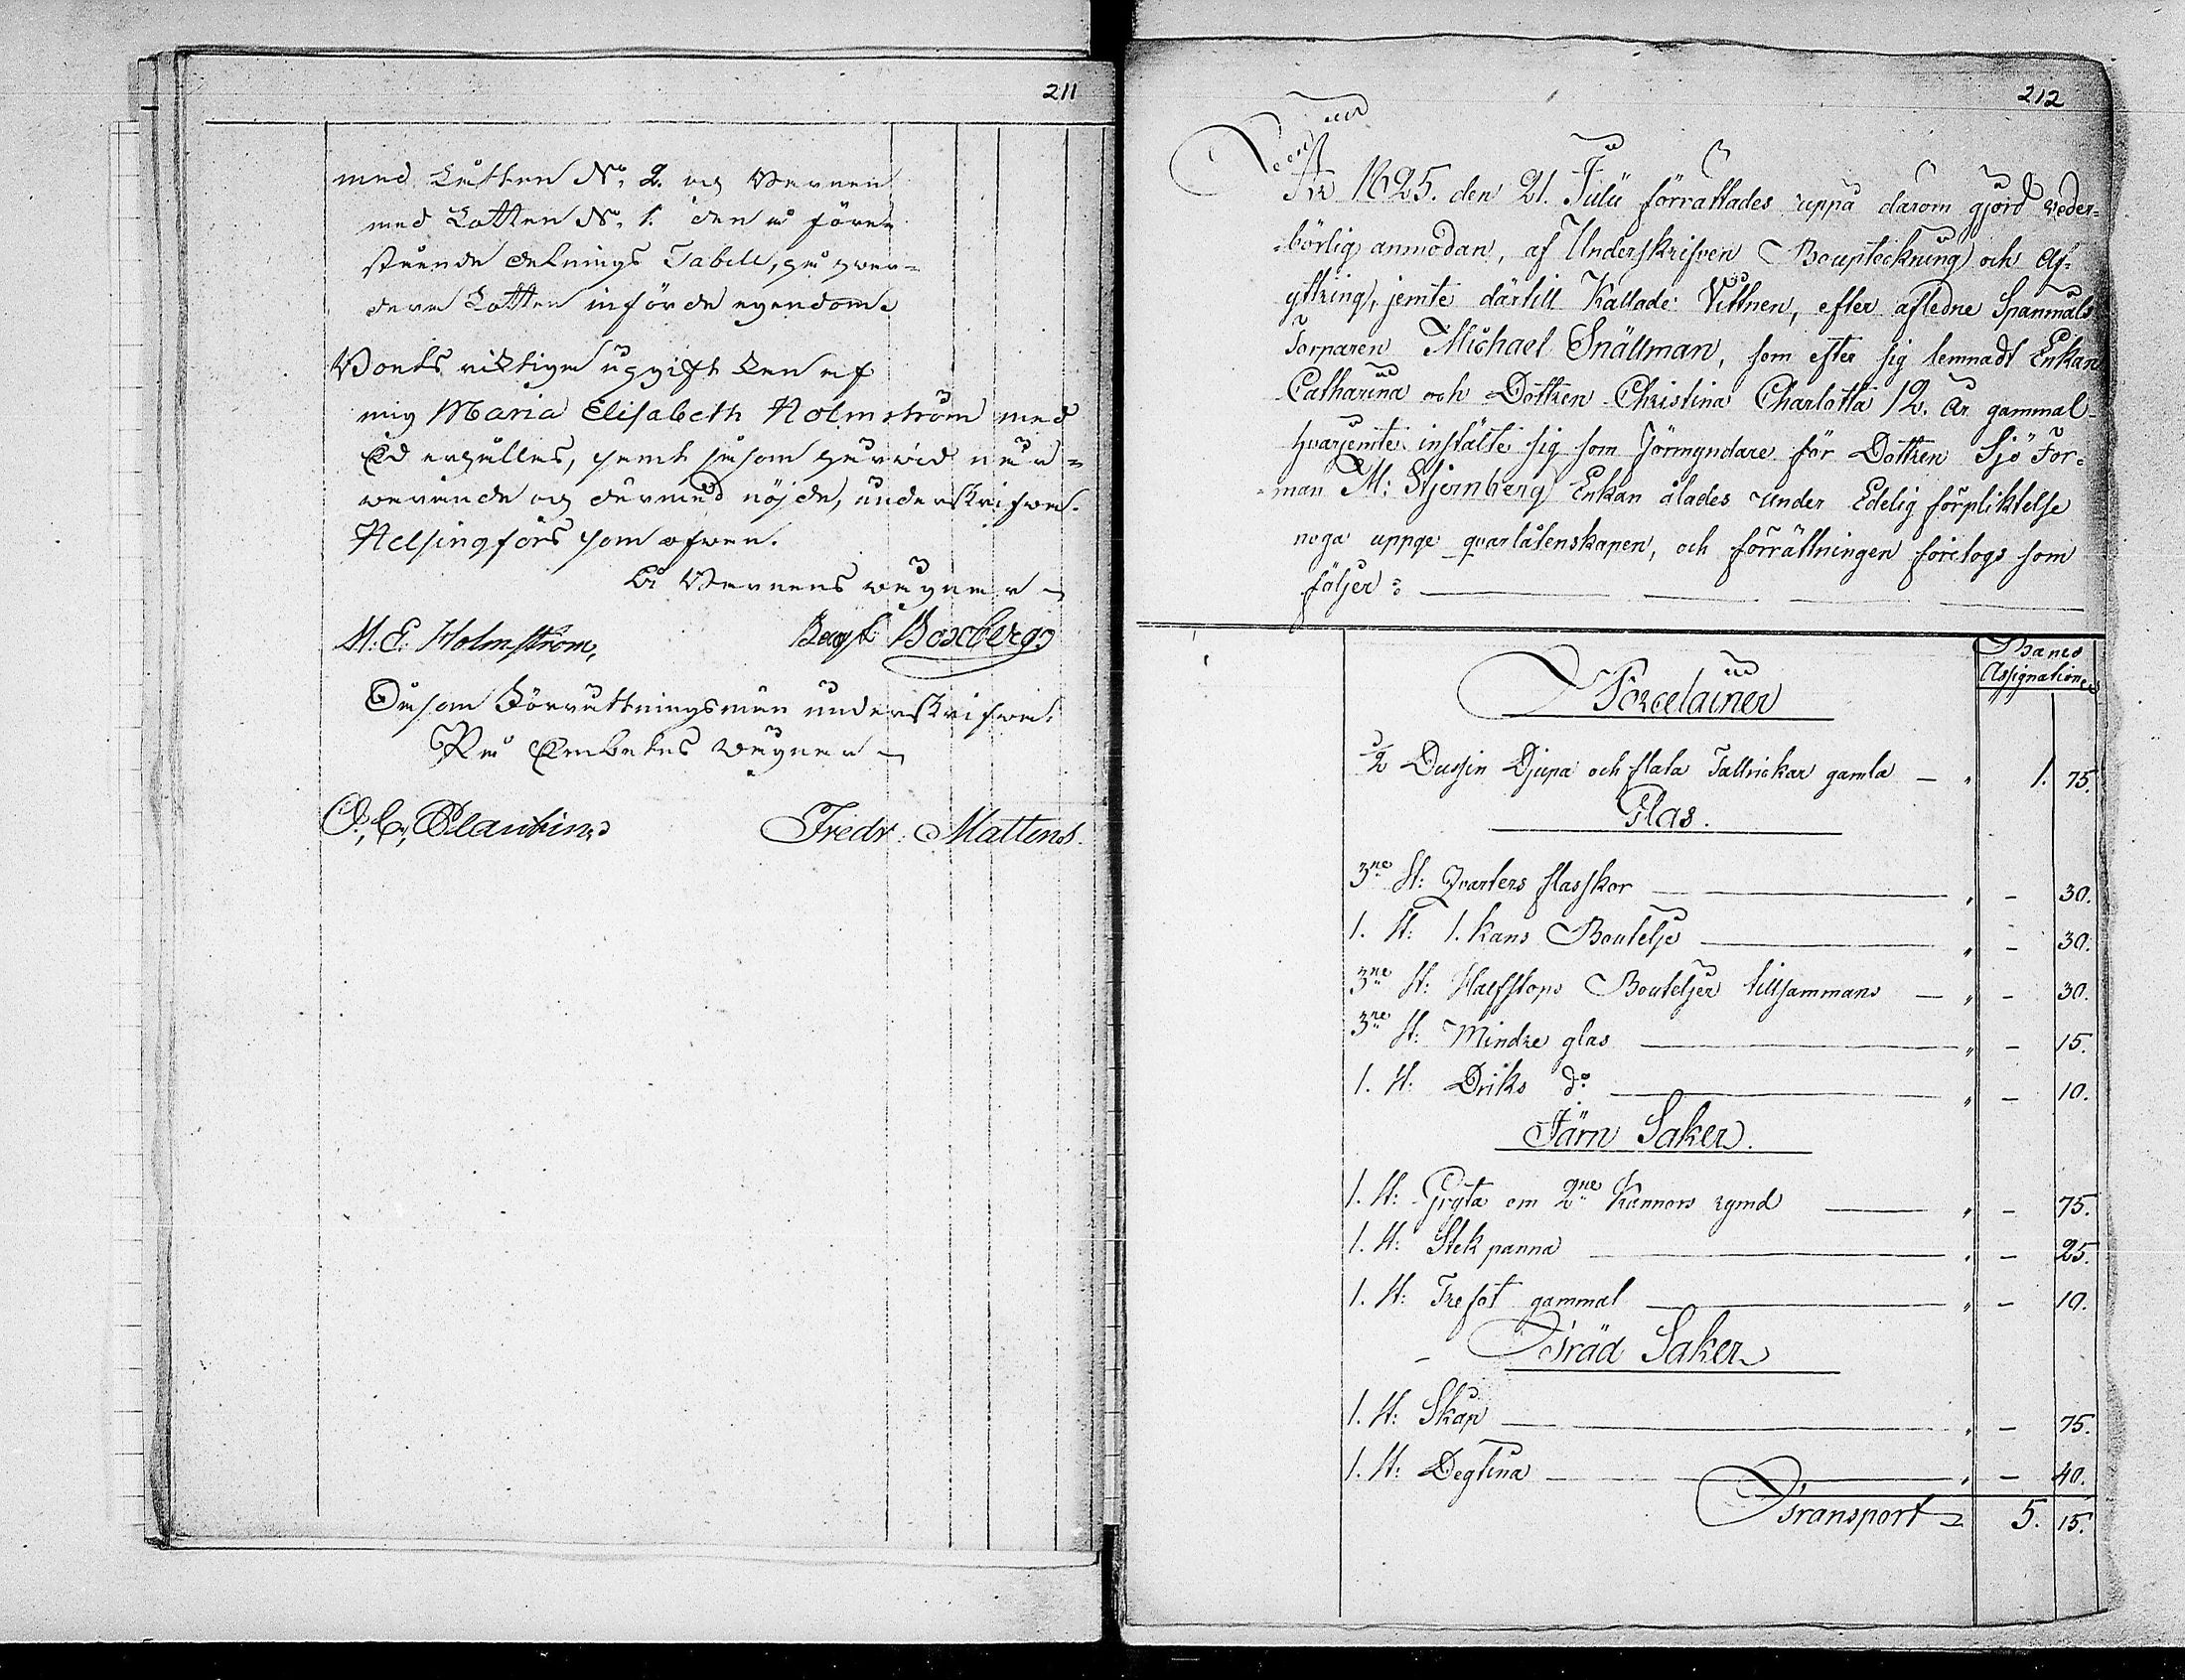 211
med Lotten N:o 2. og Barnen
med Lotten N:o 1. den å före
stående delnings Tabell, på hvar-
dera Lotten införde egendom.
Boets riktiga uppgift kan af
mig Maria Elisabeth Holmström med
Ed erhålles, samt såsom härvid när-
varande og dermed nöjde, underskrifver.
Helsingfors som ofvan.
På Barnens vägnar
M: E: Holmström,
Boxberg
Såsom Förrättningsmän underskrifver:
På Embetes vägnar
Fredr. Mattens.
212
År 1825. den 21. Julii förrattades uppå darom gjord veder-
börlig anmodan, af Underskrifven Boupteckning och Af-
yttring, jemte dårtill Kallade Vittnen, efter afledne Spanmåls
Torparen Michael Snällman, som efter sig lemnadt Enkan
Catharina och Dottren Christina Charlotta 12. år gammal
hvarjemte instälte sig som Förmyndare för Dottren Sjö For-
man M: Stjernberg Enkan ålades under Edelig förpliktelse
noga uppge qvarlåtenskapen, och förrättningen företogs som
följer:
Banco
Assignationer
Porcelainer
1/2 Dussin Djupa och flata Tallrickar gamla — " 1. 75.
Glas.
3ne St: Qvarters flasskor — " - 30.
1. St: 1. kans Boutelje — " - 30.
3ne St: Halfstops Bouteljer tillsammans — " - 30.
3ne St: Mindre glas — " - 15.
1. St: Driks d:o — " - 10.
Järn Saker.
1. St: Gryta om 2ne Kannors rymd — " - 75.
1. St: Stek panna — " - 25.
1. St: Trefot gammal — " - 10.
Träd Saker
1. St: Skåp — " - 75.
1. St: Degtina — " - 40.
Transport 5. 15.